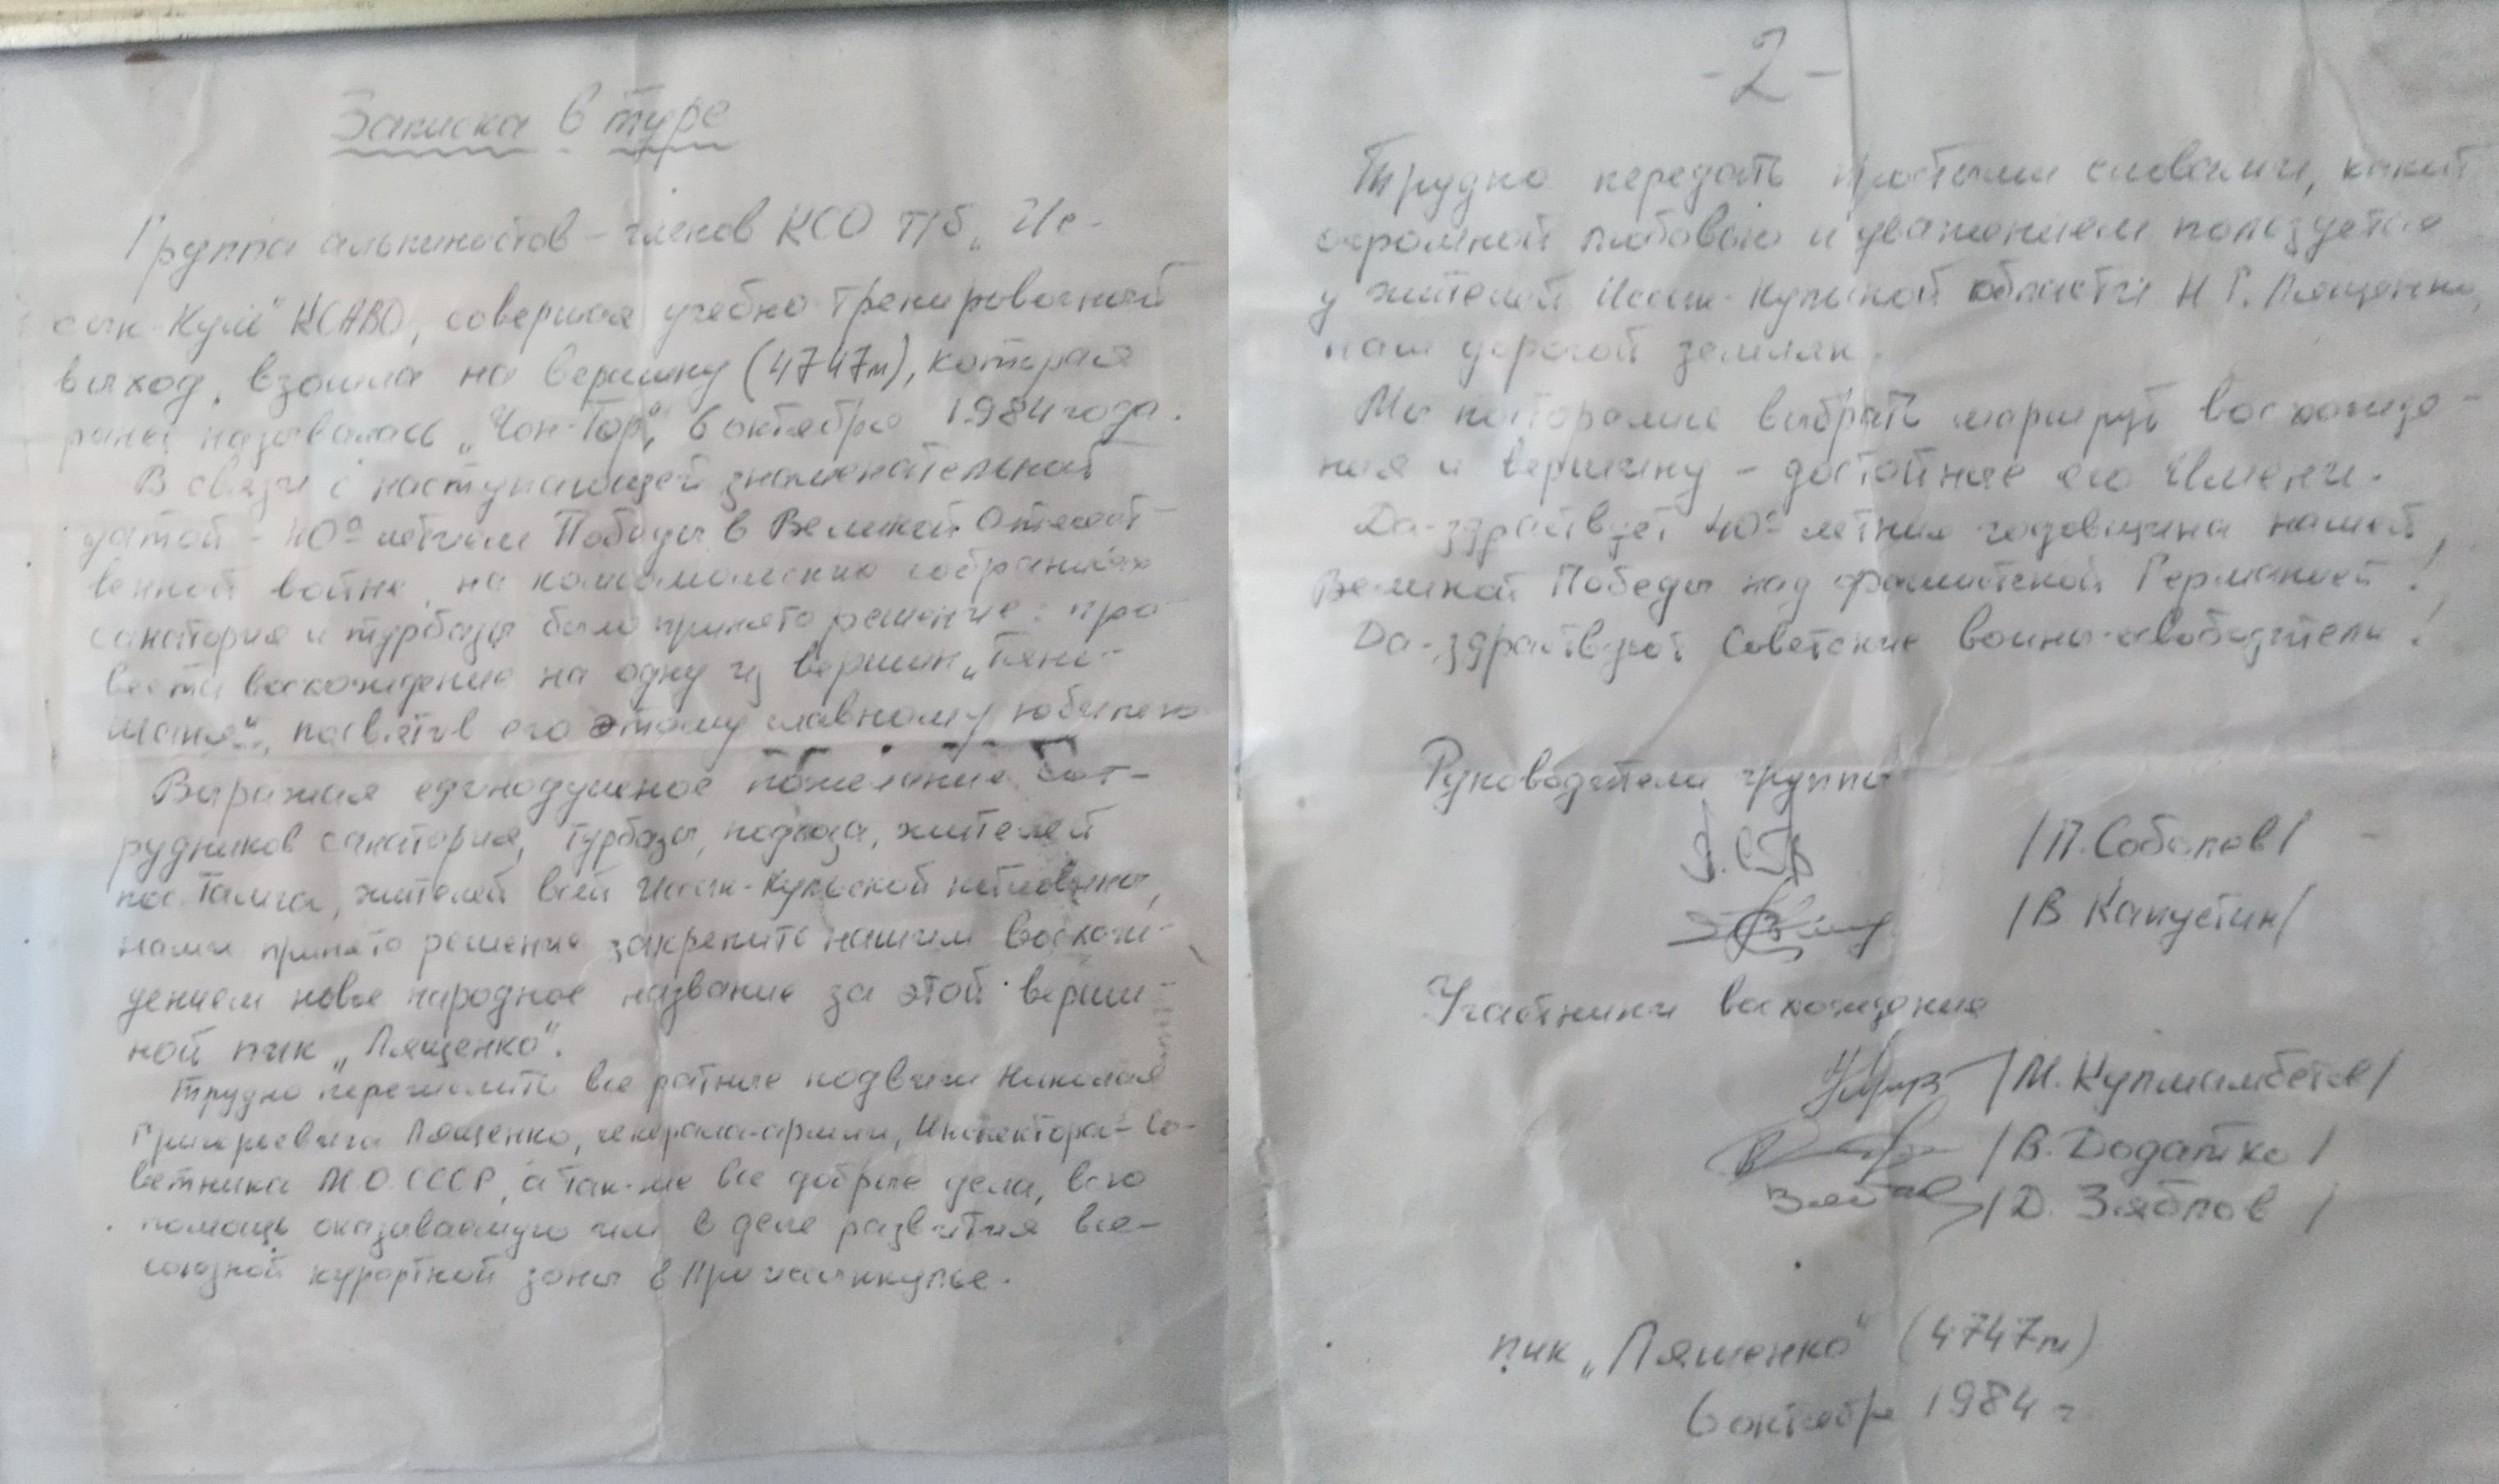 Записка в туре
Группа альпинистов - членов КСО т/б „Ис-
сык-Куль" КСАВО, совершая учебно-тренировочный
выход, взошла на вершину (4747м), которая
ранее называлась „Чон-Тор", 6 октября 1984 года.
В связи с наступающей знаменательной
датой - 40º летием Победы в Великой Отечест-
венной войне, на комсомольских собраниях
санатория и турбазы было принято решение: про-
вести восхождение на одну из вершин „Тянь-
Шаня", посвятив его этому славному юбилею
Выражая единодушное пожелание сот-
рудников санатория, турбазы, подхоза, жителей
пос. Тамга, жителей всей Иссык-Кульской котловины,
нами принято решение закрепить нашим восхож-
дением новое народное название за этой верши-
ной пик „Лященко".
Трудно перечислить все ратные подвиги Николая
Григорьевича Лященко, генерала-армии, Инспектора-Со-
ветника М.О. СССР, а так-же все добрые дела, всю
помощь оказываемую им в деле развития все-
союзной курортной зоны в Прииссыккулье.
-2-
Трудно передать простыми словами, какой
огромной любовью и уважением пользуется
у жителей Иссык-Кульской области Н.Г. Лященко,
наш дорогой земляк.
Мы постарались выбрать маршрут восхожде-
ния и вершину - достойные его Имени.
Да-здраствует 40º летняя годовщина нашей
Великой Победы над фашистской Германией!
Да-здраствуют Советские воины-освободители!
Руководители группы
/П. Соболев/
/В. Капустин/
Участники восхождения
/М. Кулмамбетов/
/В. Додатко/
/Д. Зяблов/
пик „Лященко" (4747м)
6 октября 1984 г